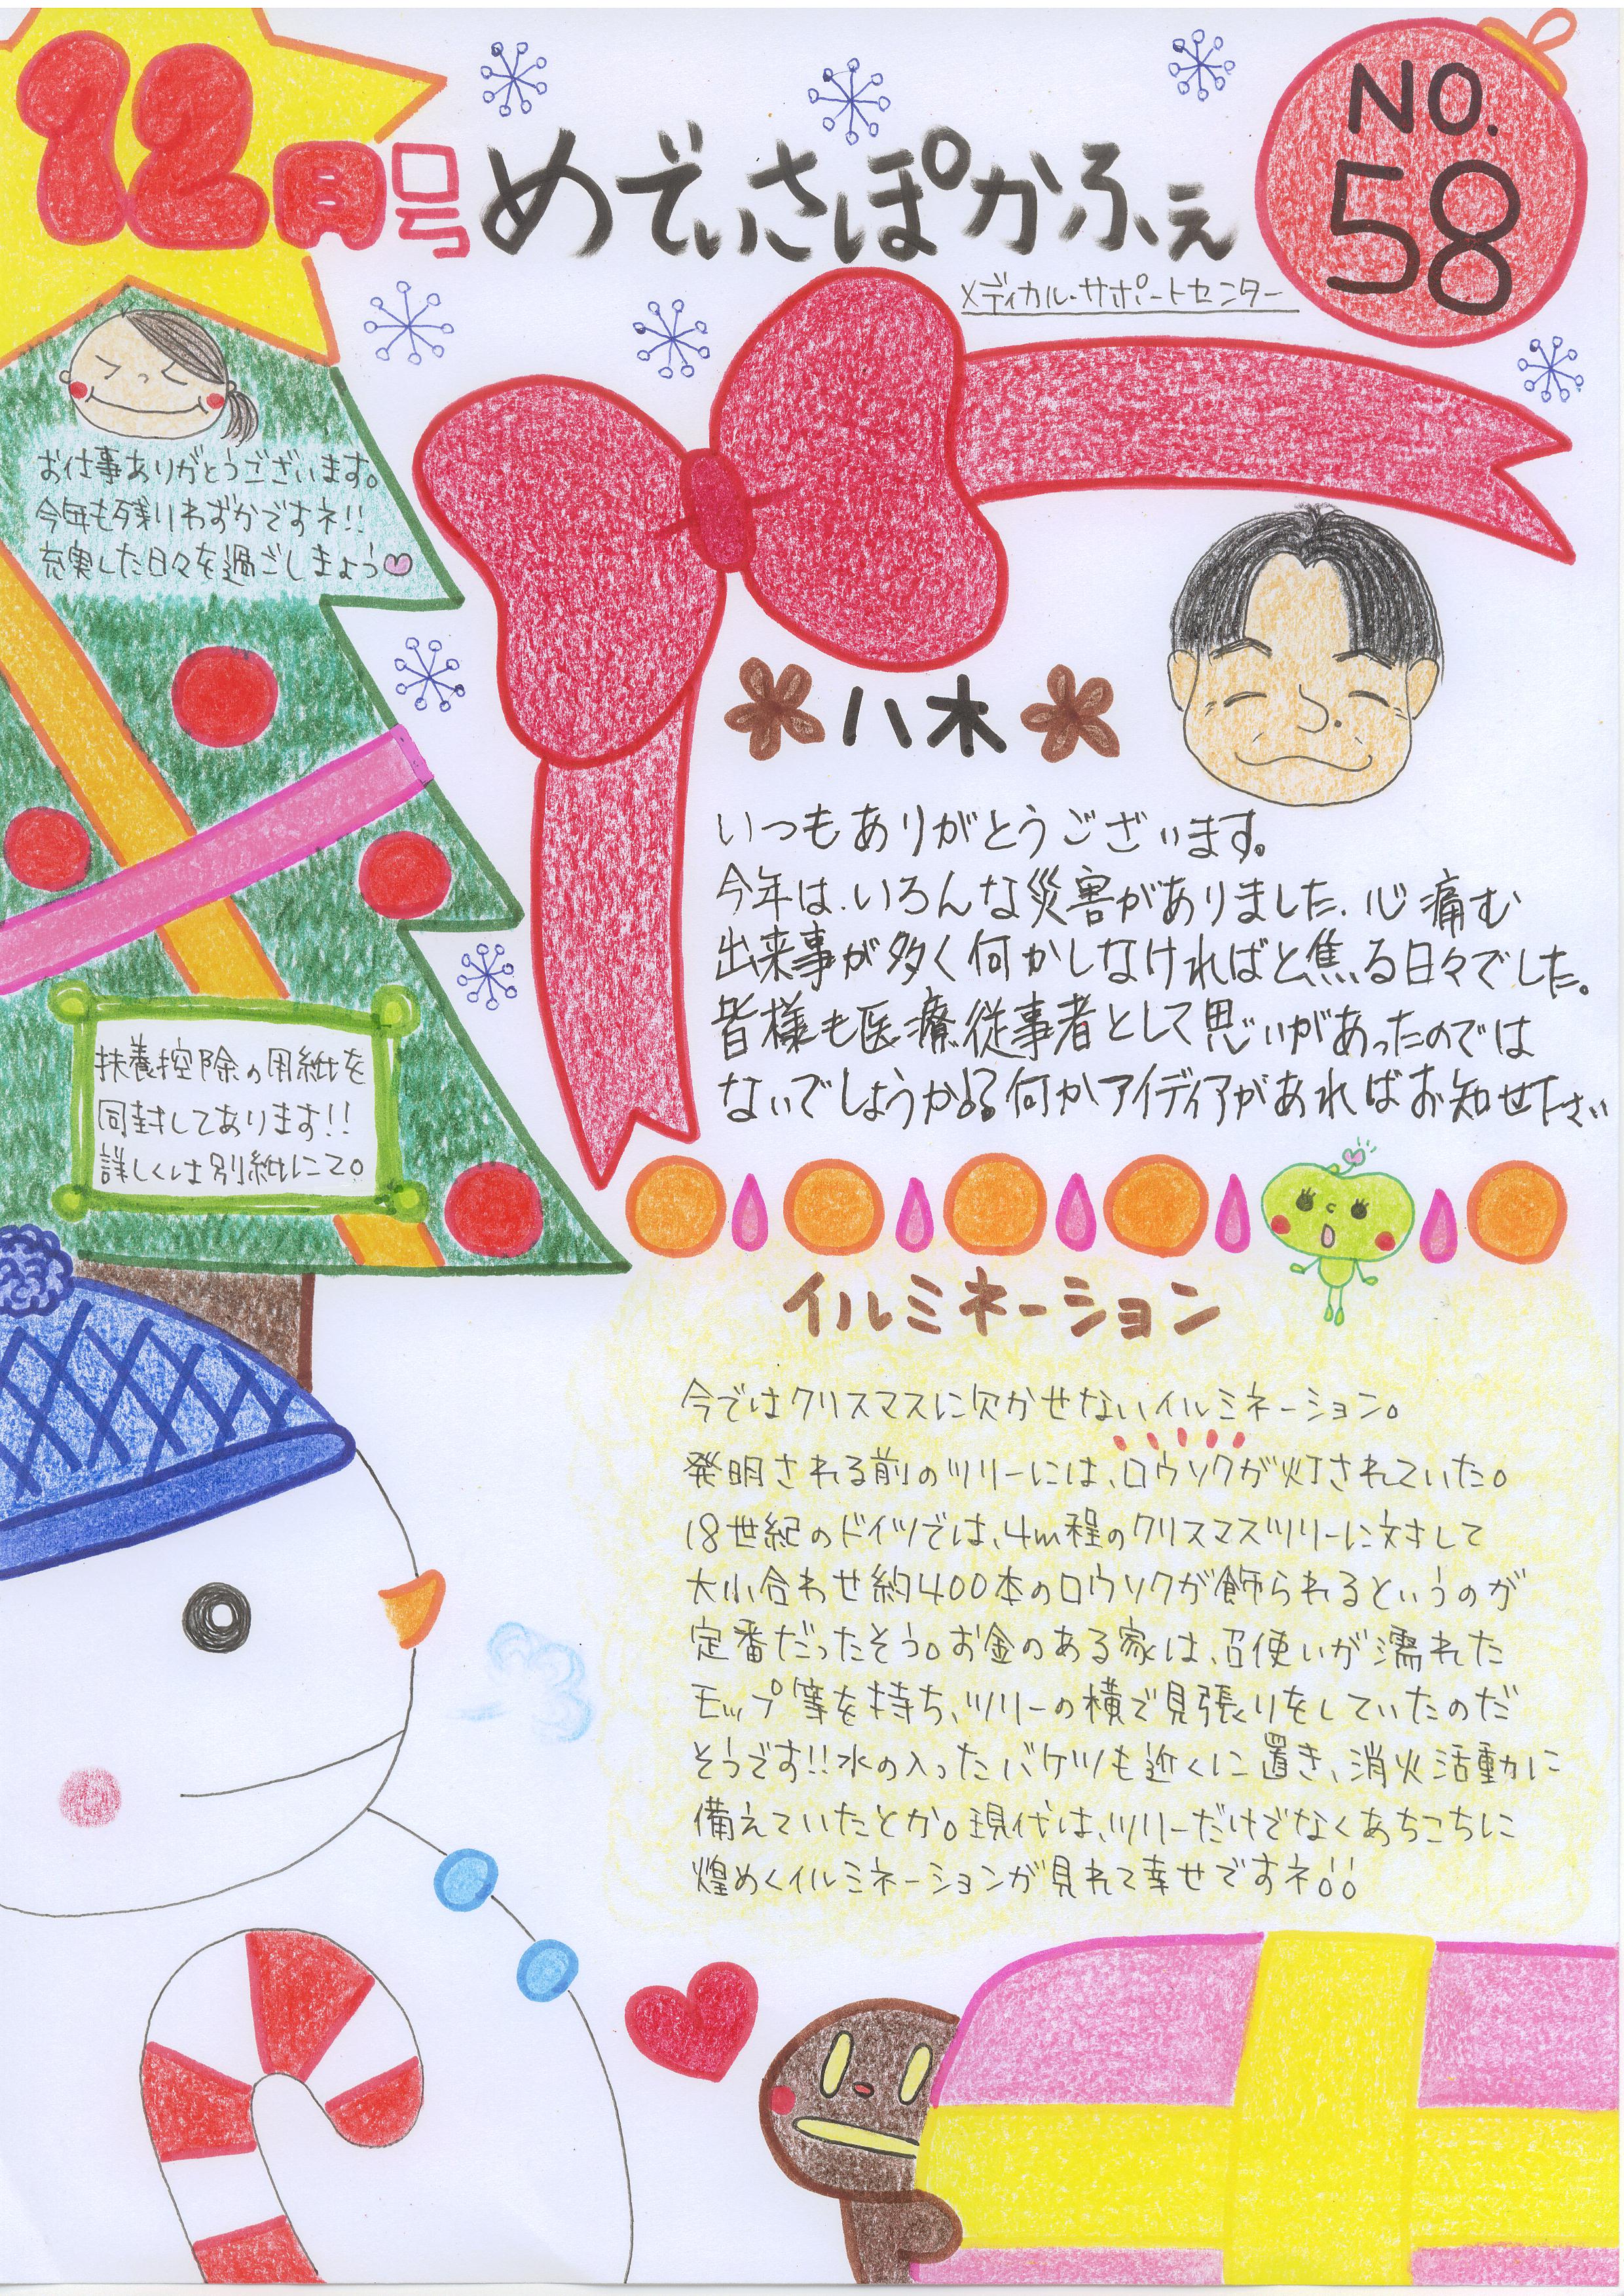 12月号
めでぃさぽかふぇ
NO.
58
メディカル・サポートセンター
お仕事ありがとうございます。
今年も残りわずかですネ!!
充実した日々を過ごしましょう♡
八木
いつもありがとうございます。
今年は、いろんな災害がありました、心痛む
出来事が多く何かしなければと焦る日々でした。
皆様も医療従事者として思いがあったのでは
ないでしょうか!?何かアイディアがあればお知せ下さい
扶養控除の用紙を
同封してあります!!
詳しくは別紙にて。
イルミネーション
今ではクリスマスに欠かせないイルミネーション。
発明される前のツリーには、ロウソクが灯されていた。
18世紀のドイツでは、4m程のクリスマスツリーに対して
大小合わせ約400本のロウソクが飾られるというのが
定番だったそう。お金のある家は、召使いが濡れた
モップ等を持ち、ツリーの横で見張りをしていたのだ
そうです!!水の入ったバケツも近くに置き、消火活動に
備えていたとか。現代は、ツリーだけでなくあちこちに
煌めくイルミネーションが見れて幸せですネ!!